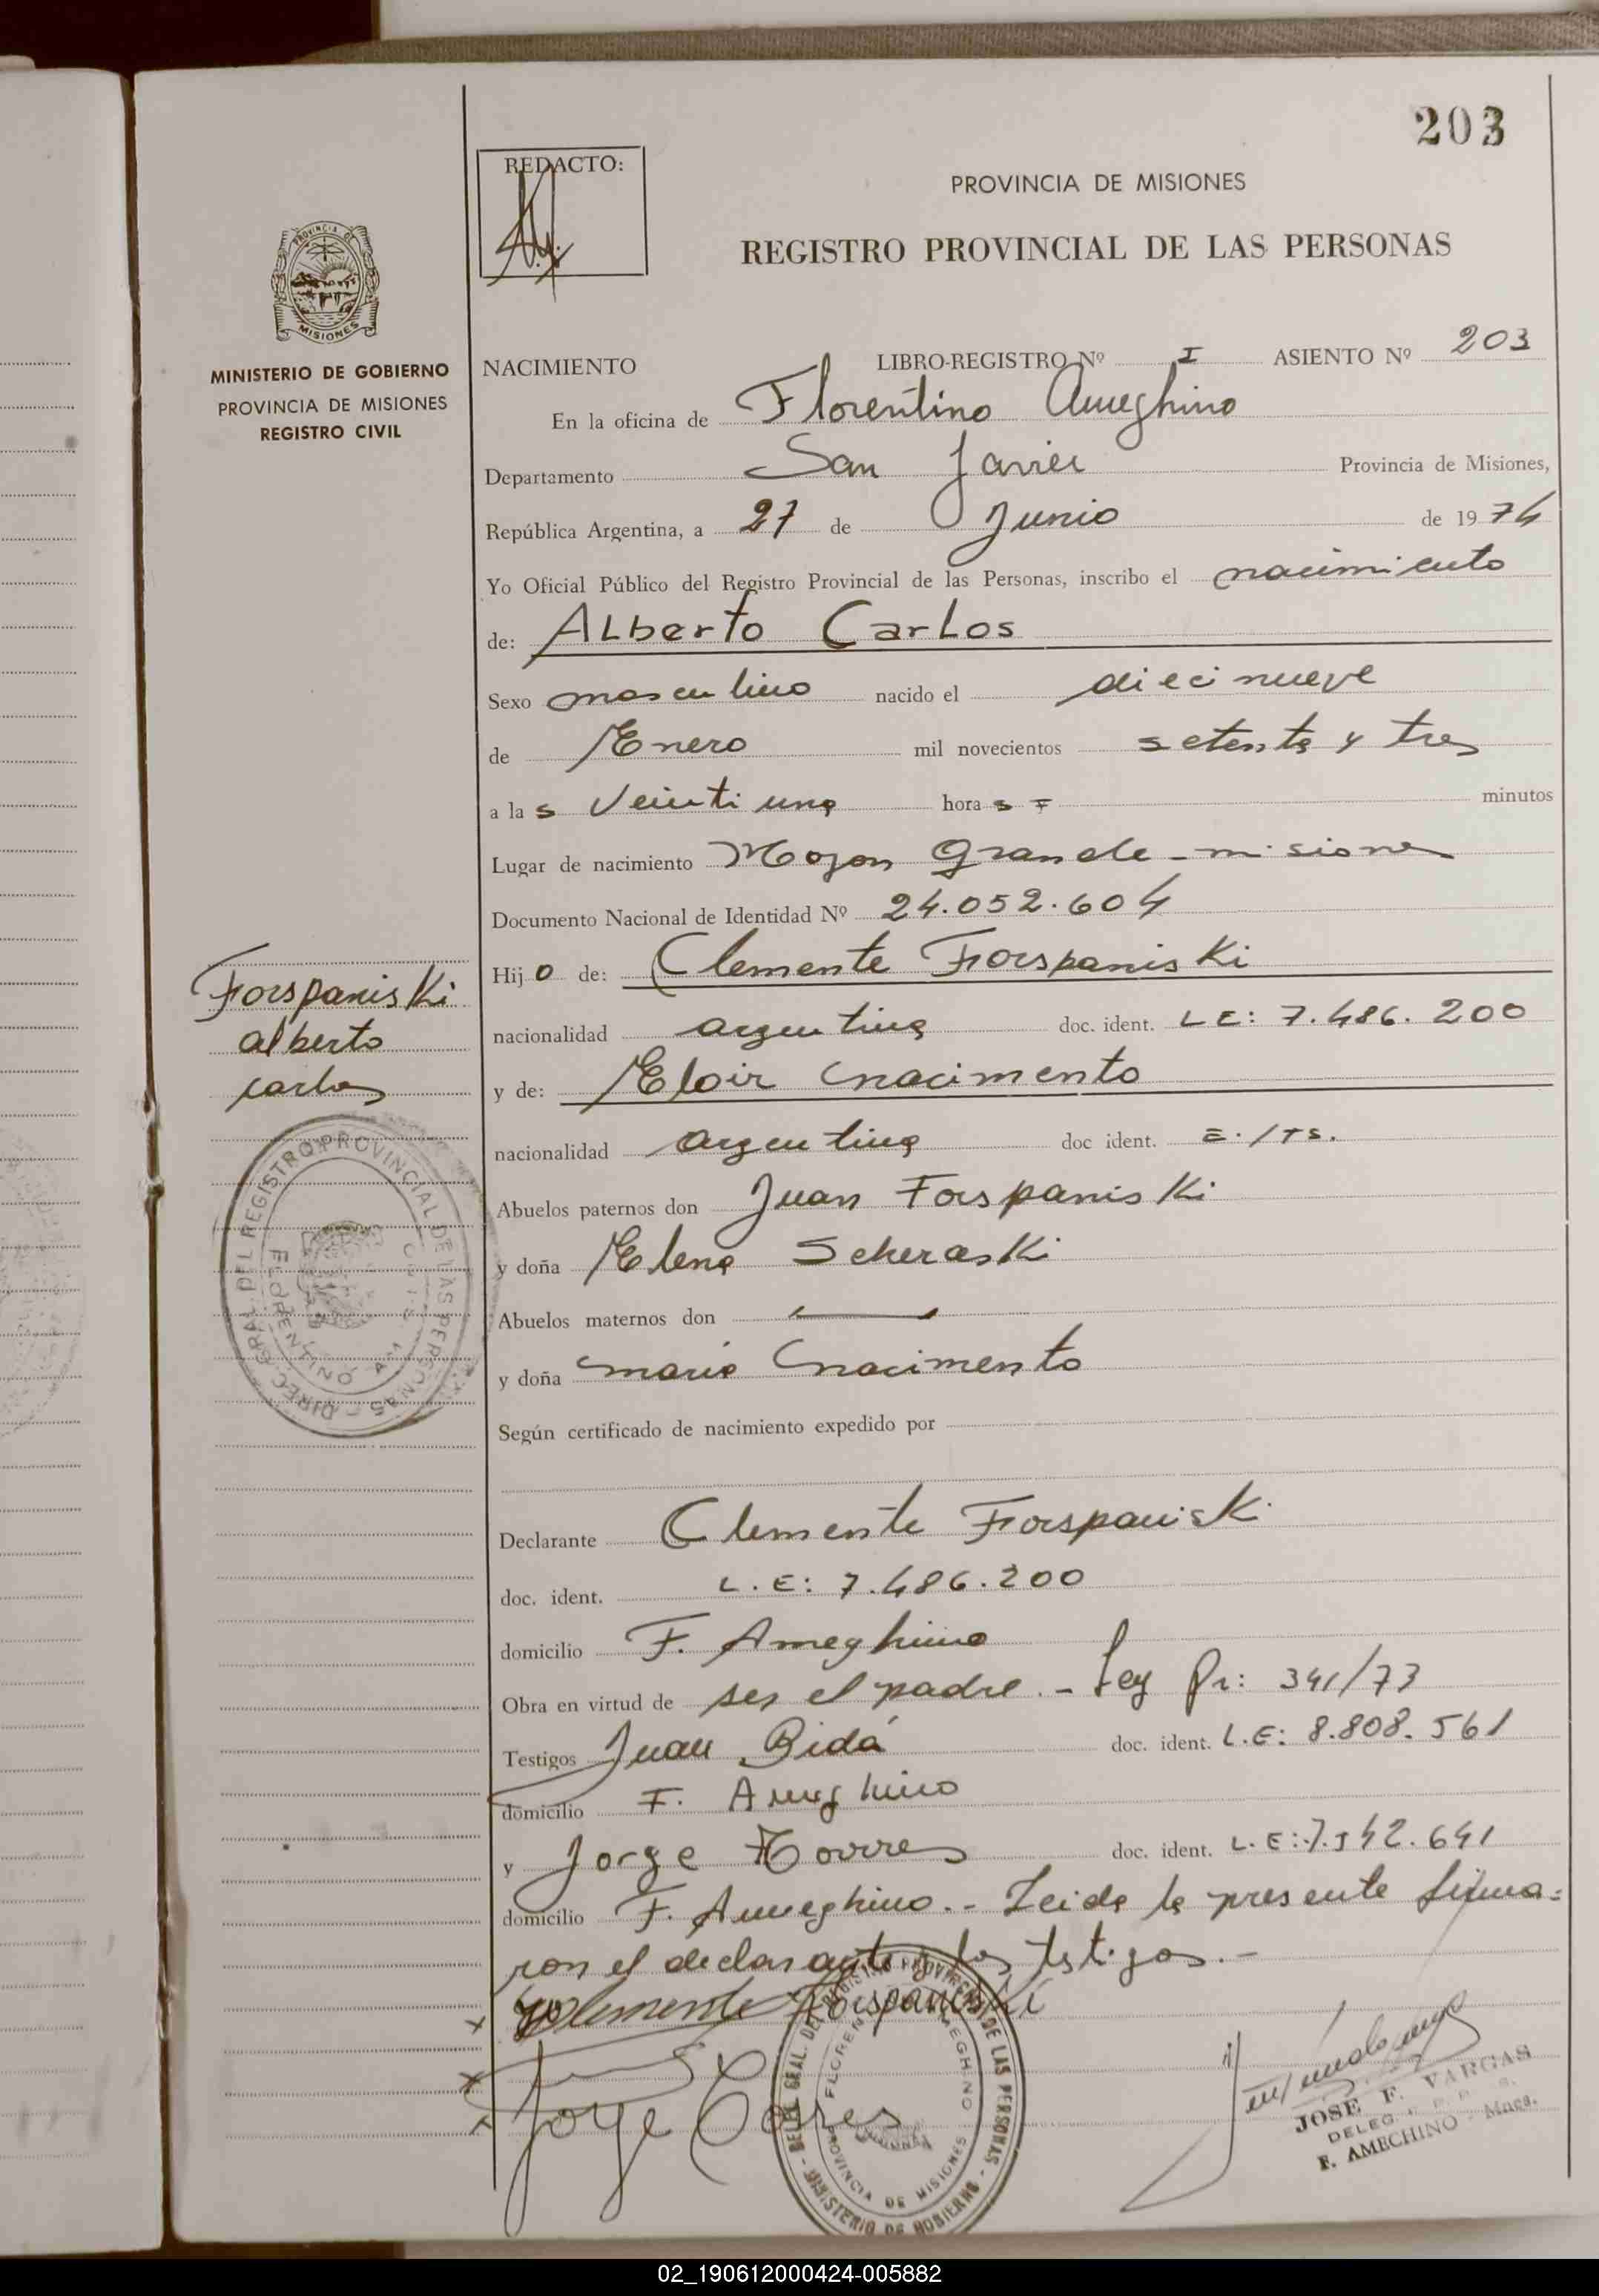 203
REDACTO:
PROVINCIA DE MISIONES
REGISTRO PROVINCIAL DE LAS PERSONAS
PROVINCIA DE
MISIONES
MINISTERIO DE GOBIERNO
PROVINCIA DE MISIONES
REGISTRO CIVIL
NACIMIENTO LIBRO-REGISTRO Nº I ASIENTO Nº 203
En la oficina de Florentino Ameghino
Departamento San Javier Provincia de Misiones,
República Argentina, a 27 de Junio de 1974
Yo Oficial Público del Registro Provincial de las Personas, inscribo el nacimiento
de: Alberto Carlos
Sexo masculino nacido el diecinueve
de Enero mil novecientos setenta y tres
a las veintiuna horas minutos
Lugar de nacimiento Mojon Grande - misiones
Documento Nacional de Identidad Nº 24.052.604
Hijo de: Clemente Forspaniski
nacionalidad argentina doc. ident. LE: 7.486.200
y de: Eloir nacimento
nacionalidad argentina doc ident.
Abuelos paternos don Juan Forspaniski
y doña Elena Scheraski
Abuelos maternos don
y doña maria nacimento
Según certificado de nacimiento expedido por
Declarante Clemente Forspaniski
doc. ident. L.E: 7.486.200
domicilio F. Ameghino
Obra en virtud de ser el padre. - Ley Pr: 341/73
Testigos Juan Bidá doc. ident. L.E: 8.808.561
domicilio F. Ameghino
y Jorge Torres doc. ident. L.E: 7.542.641
domicilio F. Ameghino. - Leida la presente firma=
ron el declarante y los testigos. -
Forspaniski
alberto
carlos
DIREC. GRAL. DEL REGISTRO PROVINCIAL DE LAS PERSONAS
FLORENTINO AM
Clemente Forspaniski
Jorge Torres
REGISTRO PROVINCIAL DE LAS PERSONAS
MINISTERIO DE GOBIERNO
PROVINCIA DE MISIONES
JOSE F. VARGAS
F. AMEGHINO - Mnes.
02_190612000424-005882